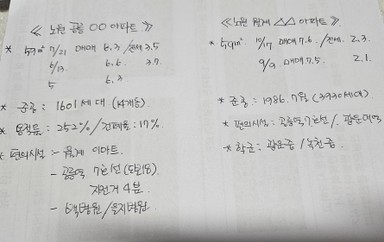 ≪ 노원 공릉 ○○ 아파트 ≫
* 59㎡ 7/21 매매 6.3 / 전세 3.5
6/13 6.6. 3.7
5 6.3
* 준공 : 1601 세대 (14개동)
* 용적률 : 252% / 건폐율 : 17%
* 편의시설 - 월계 이마트
- 공릉역 7호선 (도보8)
자전거 4분
- 병원 / 을지병원
≪ 노원 월계 △△ 아파트 ≫
* 59㎡ 10/17 매매 7.6 / 전세. 2.3
9/9 매매 7.5. 2.1.
* 준공 : 1986. 7월 (3930세대)
* 편의시설 : 7호선 / 광운대역
* 학군 : 중 / 녹천중